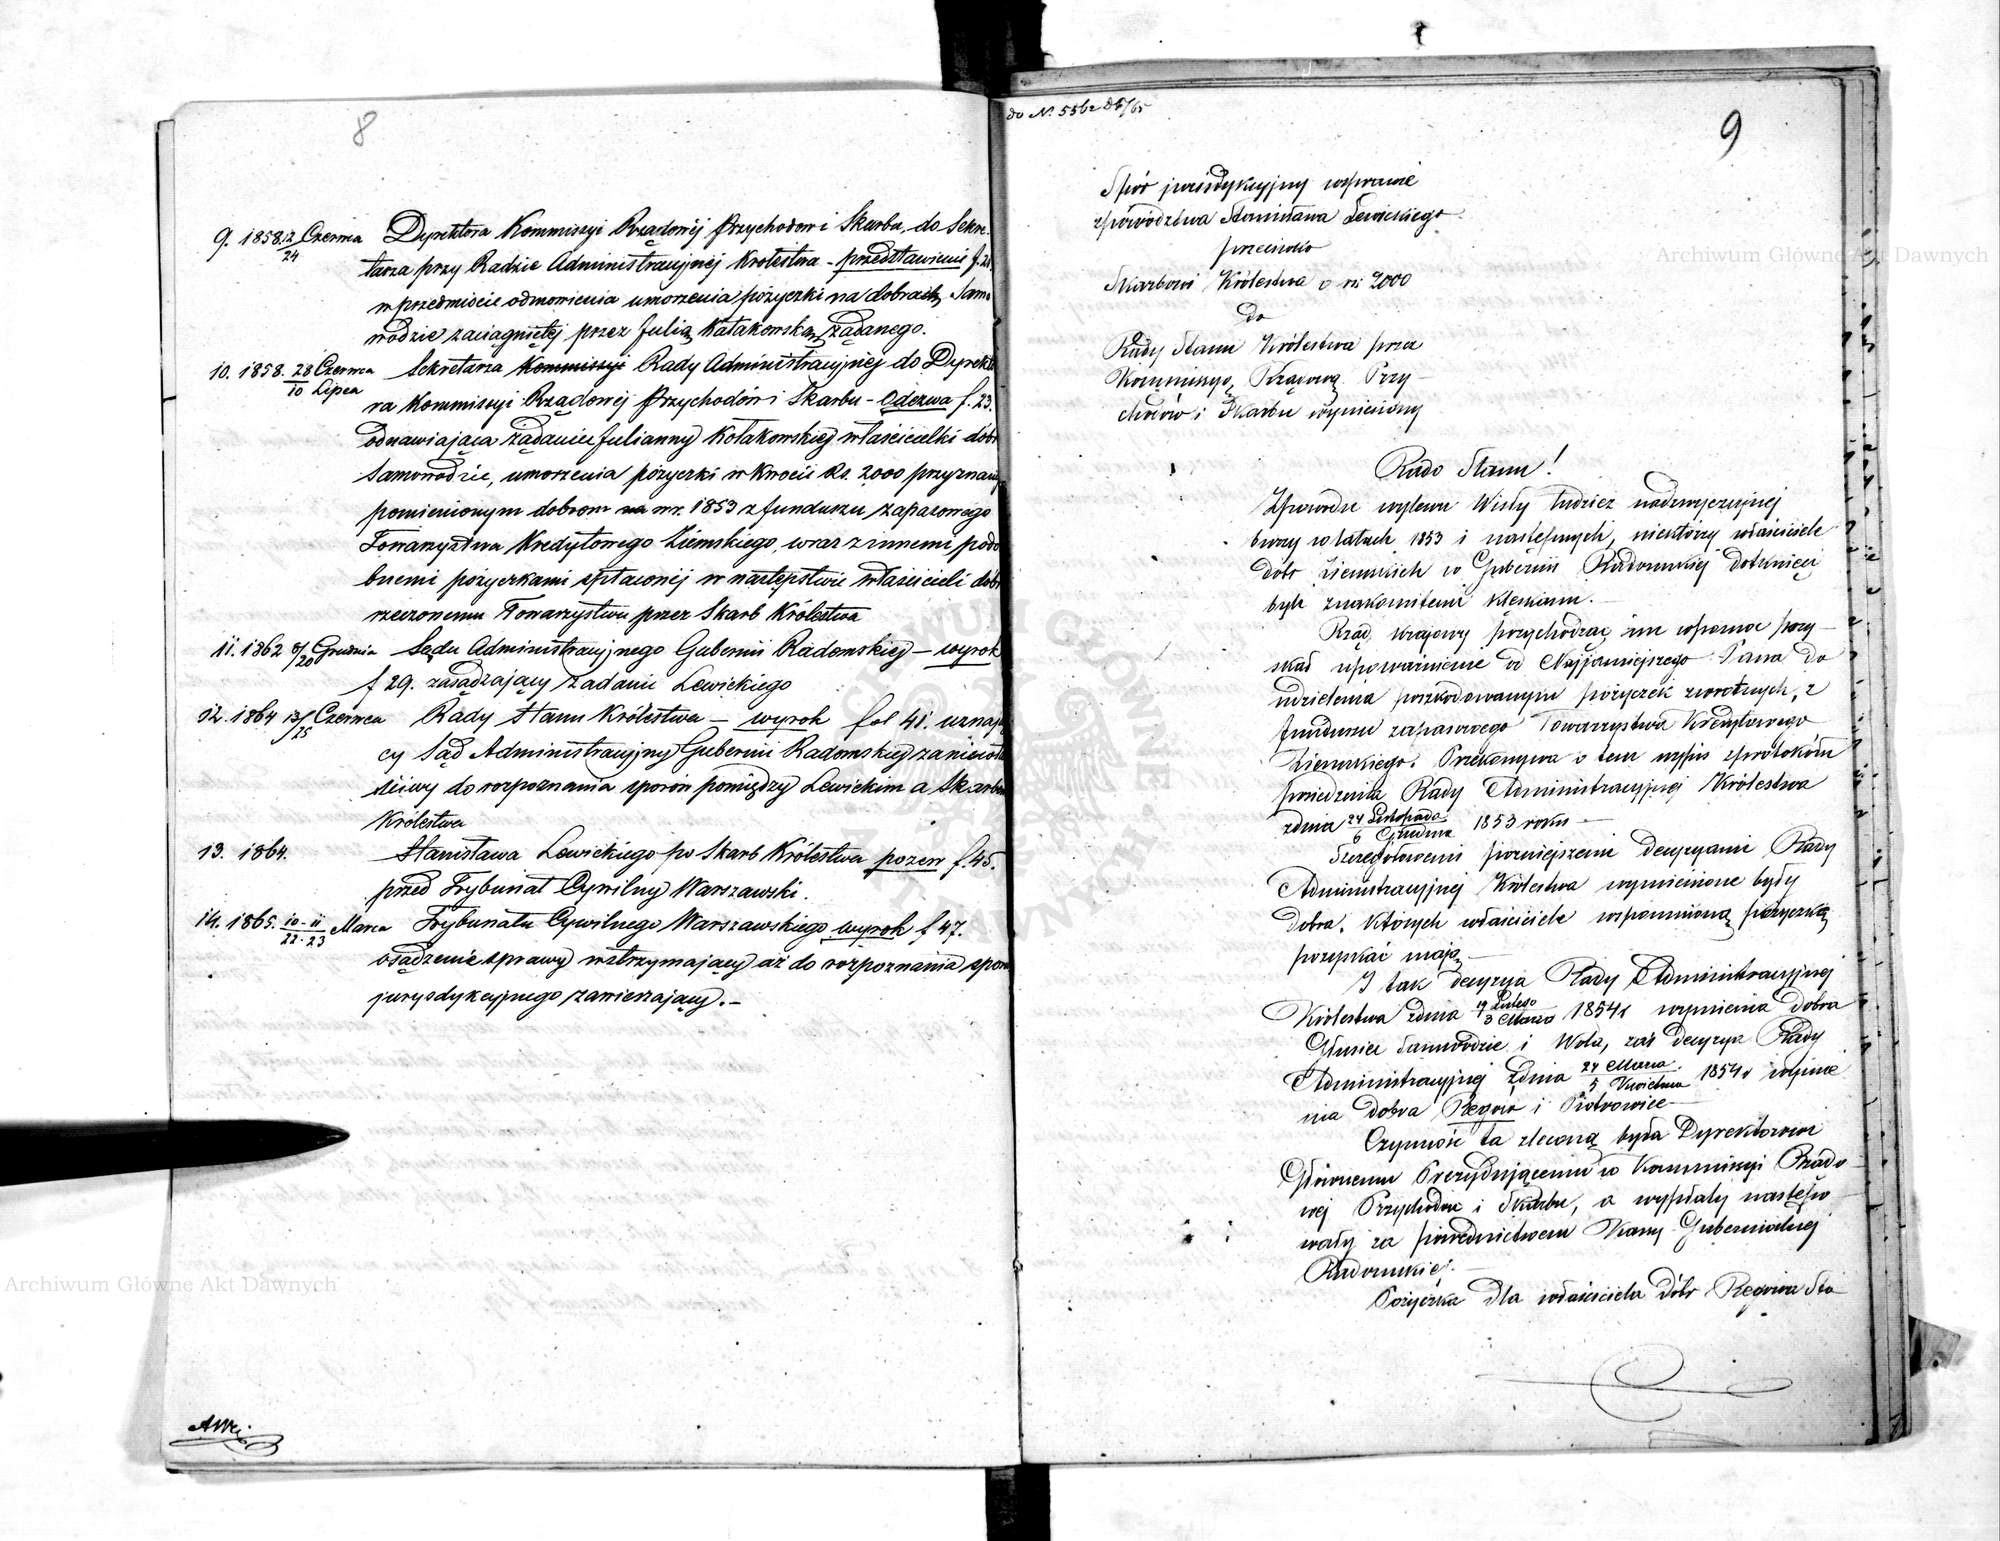 8
9. 1858 12/24 Czerwca Dyrektora Kommissyi Rządowej Przychodów i Skarbu, do Sekre-
tarza przy Radzie Administracyjnej Królestwa - przedstawienie f. 21
w przedmiocie odmówienia umorzenia pożyczki na dobrach Samo
wodzie zaciągniętej przez Julią Kołakowską żądanego.
10. 1858. 28 Czerwca/10 Lipca Sekretarza Kommissyi Rady Administracyjnej do Dyrekto
ra Kommissyi Rządowej Przychodów i Skarbu - Odezwa f. 23.
odnawiająca żądanie Julianny Kołakowskiej właścicielki dóbr
Samowodzie, umorzenia pożyczki w kwocie Rs. 2000 przyznanej
pomienionym dobrom na w r. 1853 z funduszu zapasowego
Towarzystwa Kredytowego Ziemskiego, wraz z innemi podo
bnemi pożyczkami spłaconej w następstwie właścicieli dóbr
rzeczonemu Towarzystwu przez Skarb Królestwa
11. 1862 8/20 Grudnia Sądu Administracyjnego Gubernii Radomskiej - wyrok
f 29. zasądzający żądanie Lewickiego
12. 1864 13/25 Czerwca Rady Stanu Królestwa - wyrok fol 41. uznają
cy Sąd Administracyjny Gubernii Radomskiej za niewła
ściwy do rozpoznania sporów pomiędzy Lewickim a Skarbem
Królestwa
13. 1864. Stanisława Lewickiego po Skarb Królestwa pozew f. 45.
przed Trybunał Cywilny Warszawski.
14. 1865. 10-11/22-23 Marca Trybunału Cywilnego Warszawskiego wyrok f 47.
osądzenie sprawy wstrzymający aż do rozpoznania sporu
jurysdykcyjnego zawieszający. -
do N. 5562 d6/65
9
Spór jurisdykcyjny w sprawie
z powództwa Stanisława Lewickiego
przeciwko
Skarbowi Królestwa o rs: 2000
do
Rady Stanu Królestwa przez
Kommissyą Rządową Przy-
chodów i Skarbu wyniesiony
Rado Stanu!
Z powodu wylewu Wisły tudzież nadzwyczajnej
burzy w latach 1853 i następnych, niektórzy właściciele
dóbr ziemskich w Gubernii Radomskiej dotknięci
byli znakomitemi klęskami. -
Rząd krajowy przychodząc im w pomoc pozy-
skał upoważnienie od Najjaśniejszego Pana do
udzielenia poszkodowanym pożyczek zwrotnych, z
funduszu zapasowego Towarzystwa Kredytowego
Ziemskiego. Przekonywa o tem wypis z protokółu
posiedzenia Rady Administracyjnej Królestwa
z dnia 24 Listopada/6 Grudnia 1853 roku -
Szczegółowemi późniejszemi decyzyami Rady
Administracyjnej Królestwa wymienione były
dobra, których właściciele wspomnioną pożyczkę
pozyskać mają -
I tak decyzya Rady Administracyjnej
Królestwa z dnia 19 Lutego/3 Marca 1854 r wymienia dobra
Głusiec Samowodzie i Wola, zaś decyzya Rady
Administracyjnej z dnia 24 Marca/5 Kwietnia 1854 r wymie
nia dobra Regów i Piotrowice -
Czynność ta zleconą była Dyrektorowi
Głównemu Prezydującemu w Kommissyi Rządo
wej Przychodów i Skarbu, a wypłaty następo
wały za pośrednictwem Kassy Gubernialnej
Radomskiej. -
Pożyczka dla właściciela dóbr Regowa Sta
Archiwum Główne Akt Dawnych
Archiwum Główne Akt Dawnych